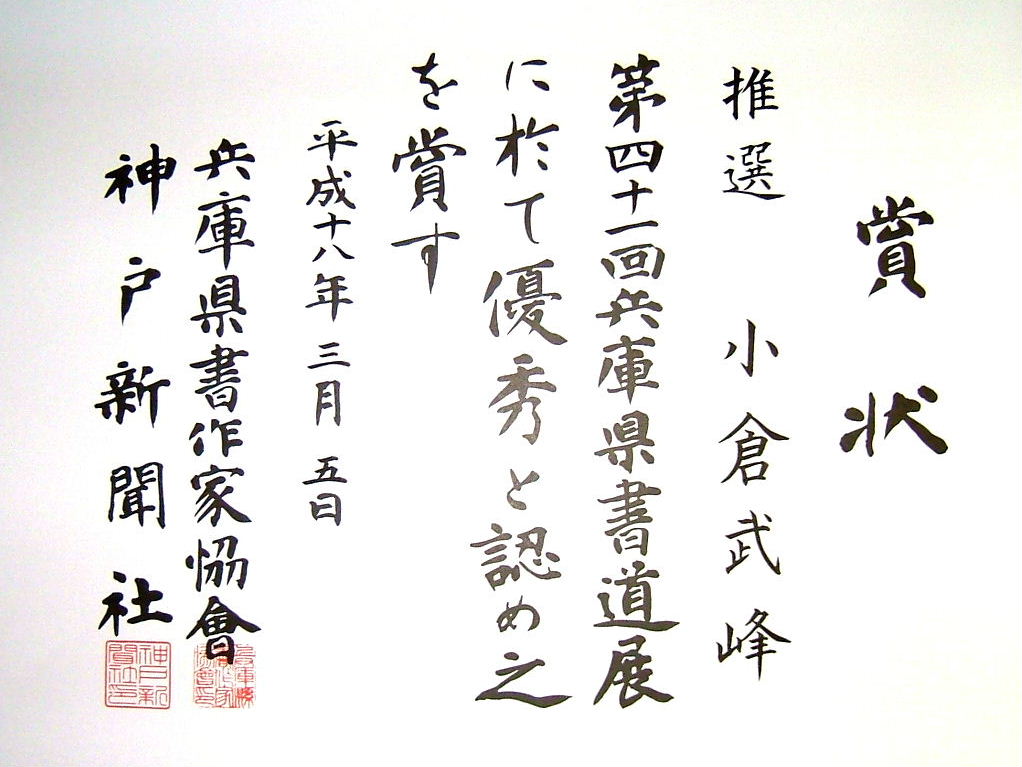 賞状
推選 小倉武峰
第四十一回兵庫県書道展
に於て優秀と認め之
を賞す
平成十八年三月五日
兵庫県書作家協會
神戸新聞社
神戸新聞社印